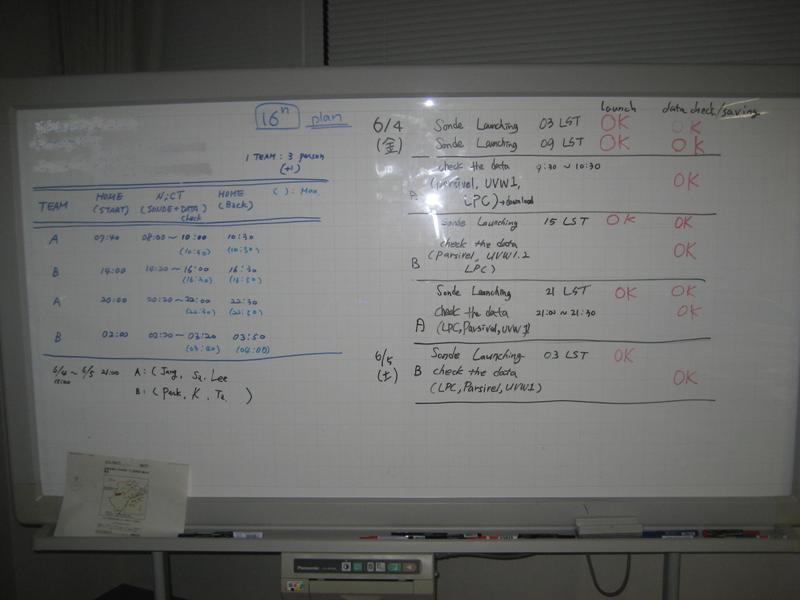 16th plan
1 TEAM : 3 person
(+1)
TEAM HOME (START) NiCT (SONDE+DATA) check HOME (Back) ( ): Max.
A 07:40 08:00 ~ 10:00 10:30
(10:30) (10:50)
B 14:00 14:20 ~ 16:00 16:30
(16:30) (16:50)
A 20:00 20:20 ~ 22:00 22:30
(22:30)
B 02:00 02:20 ~ 03:20 03:50
(03:40) (04:00)
6/4 ~ 6/5 21:00 A : ( Jang, Lee
B : ( Park, K, )
launch data check/saving
6/4 Sonde Launching 03 LST OK OK
(金) Sonde Launching 09 LST OK OK
check the data 9:30 ~ 10:30
(Parsivel, UVW1, OK
A LPC) → download
Sonde Launching 15 LST OK OK
check the data
(Parsivel, UVW1.2 OK
B LPC)
Sonde Launching 21 LST OK OK
check the data 21:00 ~ 21:30 OK
A (LPC, Parsivel, UVW1)
6/5 Sonde Launching 03 LST OK
(土) B check the data OK
(LPC, Parsivel, UVW1)
Panasonic